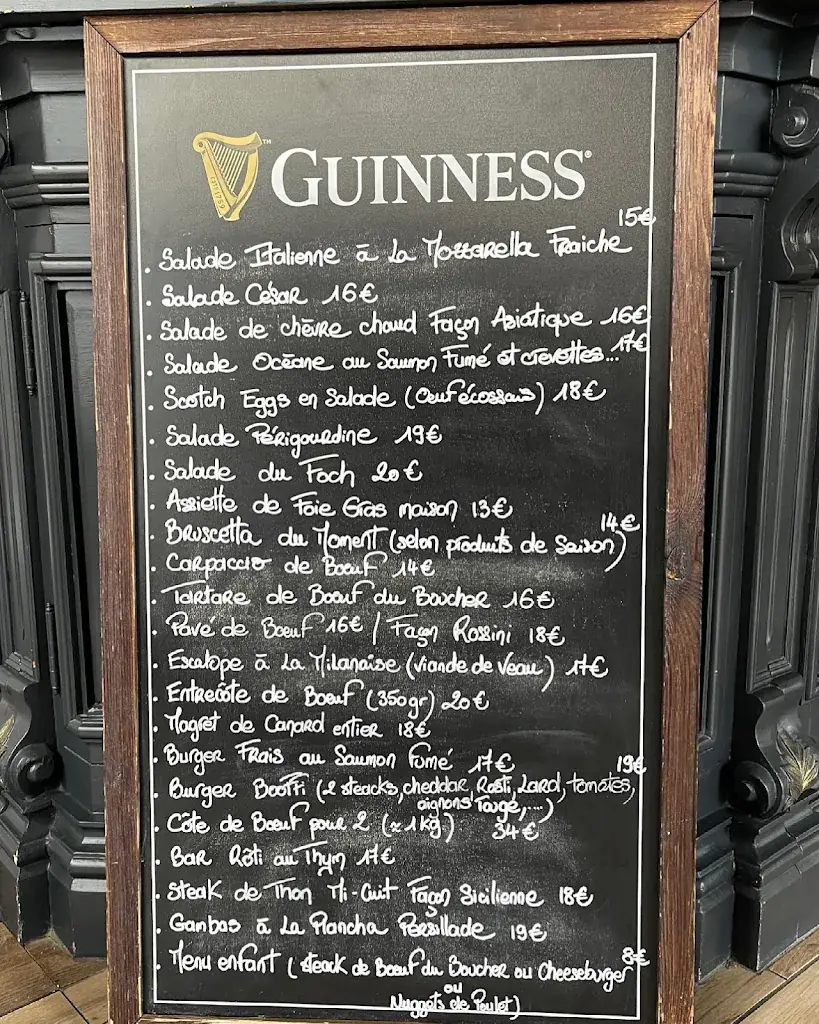 GUINNESS
15€
. Salade Italienne à La Mozzarella Fraiche
. Salade César 16€
. Salade de chèvre chaud Façon Asiatique 16€
17€
. Salade Océane au Saumon Fumé et crevettes...
. Scotch Eggs en Salade (Oeuf écossais) 18€
. Salade Périgourdine 19€
. Salade du Foch 20€
. Assiette de Foie Gras maison 13€
14€
. Bruscetta du Moment (selon produits de Saison)
. Carpaccio de Boeuf 14€
. Tartare de Boeuf du Boucher 16€
. Pavé de Boeuf 16€ / Façon Rossini 18€
. Escalope à La Milanaise (viande de Veau) 17€
. Entrecôte de Boeuf (350gr) 20€
. Magret de Canard entier 18€
. Burger Frais au Saumon Fumé 17€
19€
. Burger (2 steacks, cheddar, Rosti, Lard, tomates,
oignons Rouge, ...)
. Côte de Boeuf pour 2 (≈1Kg) 34€
. Bar Rôti au Thym 17€
. Steak de Thon Mi-Cuit Façon Sicilienne 18€
. Gambas à La Plancha Persillade 19€
8€
. Menu enfant (steack de Boeuf du Boucher ou Cheeseburger
ou
Nuggets de Poulet)